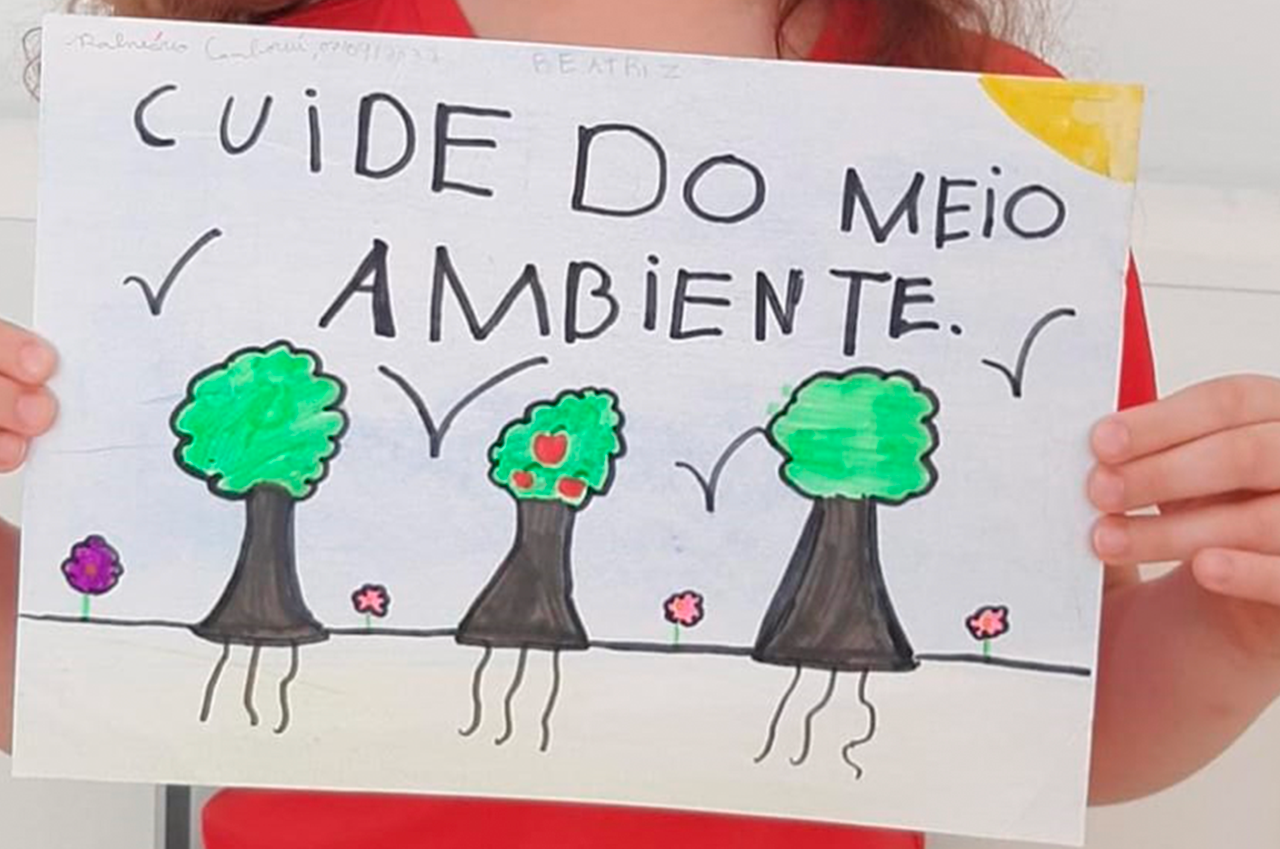 Balneário Camboriú, 02/09/2022 BEATRIZ
CUiDE DO MEiO
AMBiENTE.